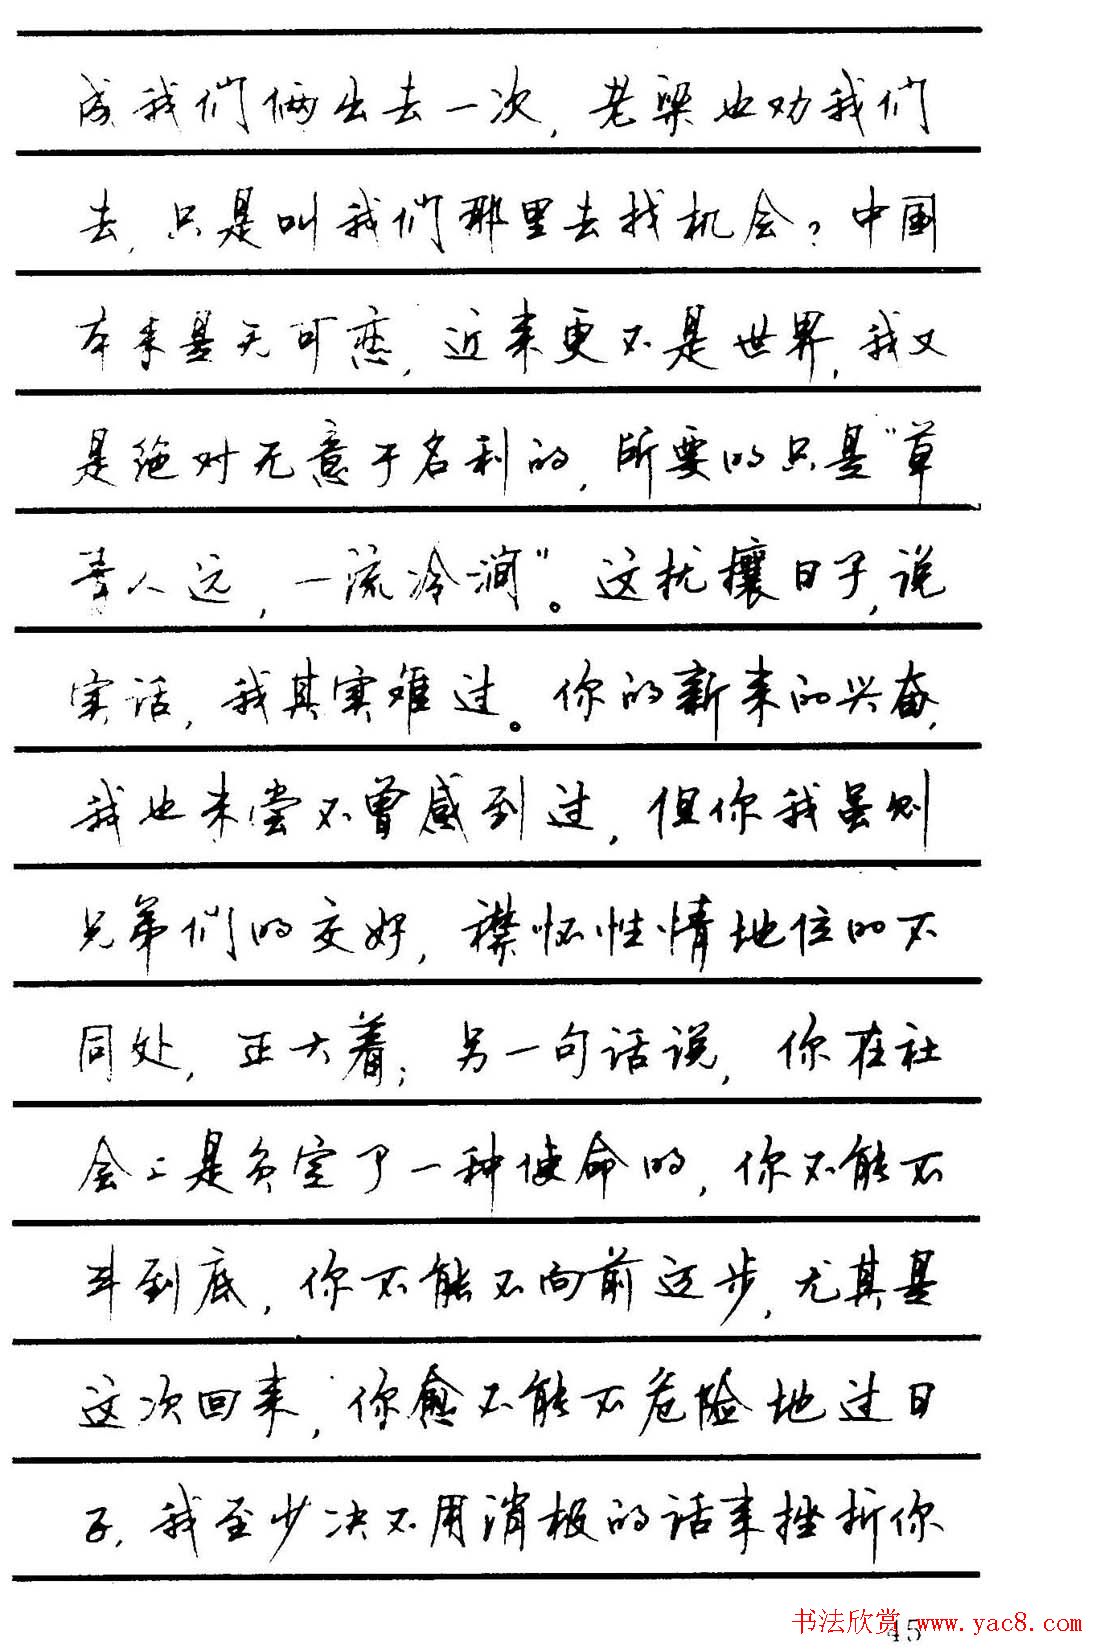 成我们俩出去一次，老梁也劝我们
去，只是叫我们那里去找机会？中国
本来是无可恋，近来更不是世界，我又
是绝对无意于名利的，所要的只是“草
青人远，一流冷涧”。这扰攘日子，说
实话，我其实难过。你的新来的兴奋，
我也未尝不曾感到过，但你我虽则
兄弟们的交好，襟怀性情地位的不
同处，正大着；另一句话说，你在社
会上是负定了一种使命的，你不能不
斗到底，你不能不向前迈步，尤其是
这次回来，你愈不能不危险地过日
子，我至少决不用消极的话来挫折你
45
书法欣赏 www.yac8.com